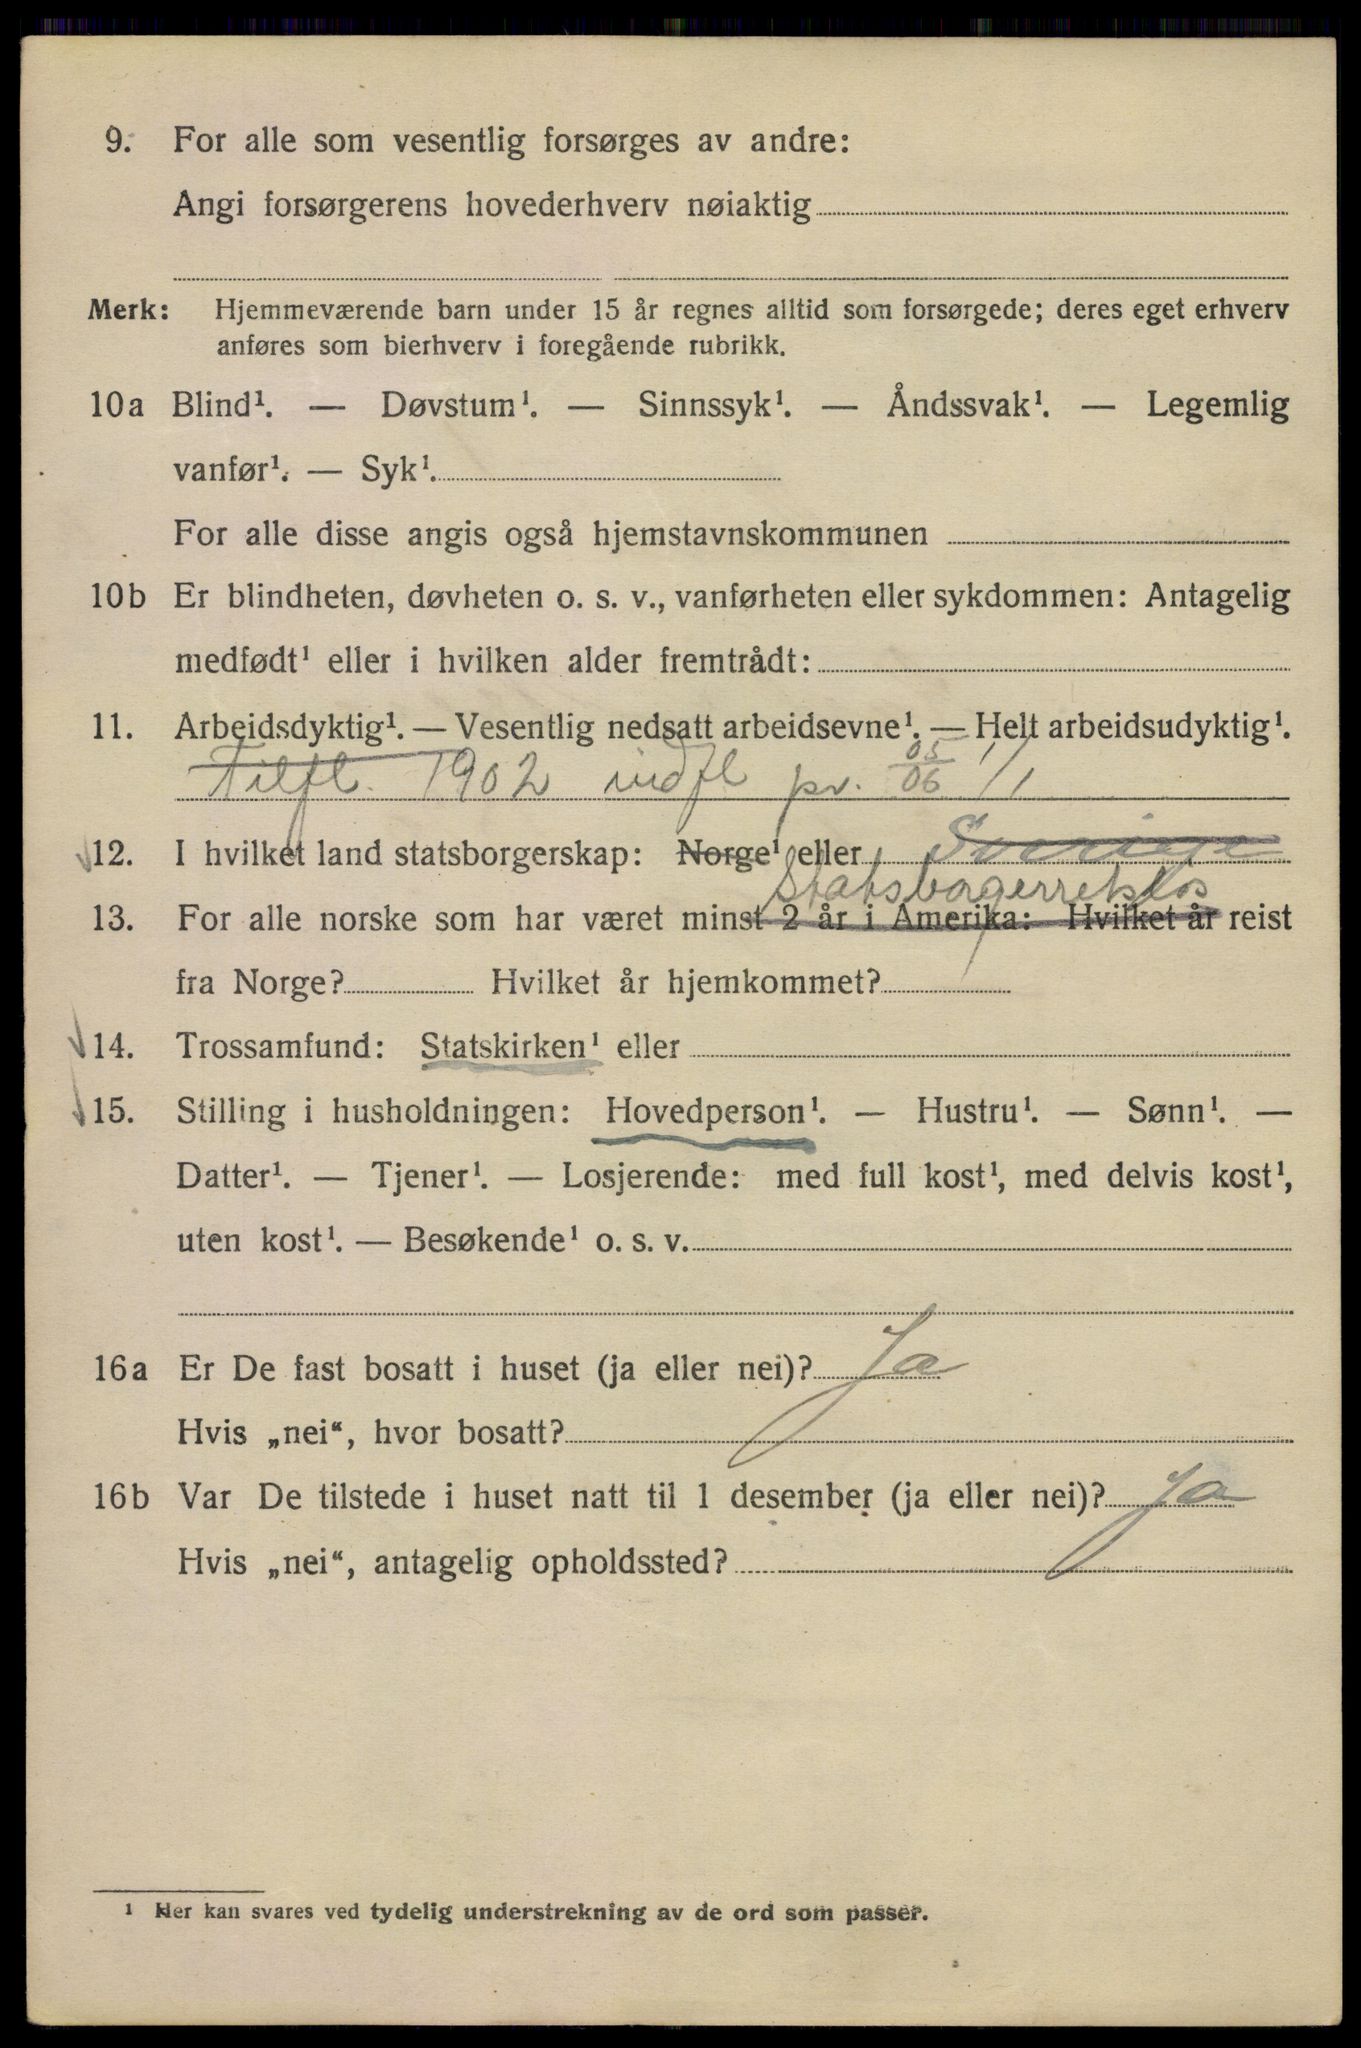 9. For alle som vesentlig forsørges av andre:
Angi forsørgerens hovederhverv nøiaktig
Merk: Hjemmeværende barn under 15 år regnes alltid som forsørgede; deres eget erhverv
anføres som bierhverv i foregående rubrikk.
10a Blind¹. — Døvstum¹. — Sinnssyk¹. — Åndssvak¹. — Legemlig
vanfør¹. — Syk¹.
For alle disse angis også hjemstavnskommunen
10b Er blindheten, døvheten o. s. v., vanførheten eller sykdommen: Antagelig
medfødt¹ eller i hvilken alder fremtrådt:
11. Arbeidsdyktig¹. — Vesentlig nedsatt arbeidsevne¹. — Helt arbeidsudyktig¹.
Tilfl. 1902 indfl pr. 05/06 1/1
12. I hvilket land statsborgerskap: Norge¹ eller Sverige
Statsborgerretsløs
13. For alle norske som har været minst 2 år i Amerika: Hvilket år reist
fra Norge? Hvilket år hjemkommet?
14. Trossamfund: Statskirken¹ eller
15. Stilling i husholdningen: Hovedperson¹. — Hustru¹. — Sønn¹. —
Datter¹. — Tjener¹. — Losjerende: med full kost¹, med delvis kost¹,
uten kost¹. — Besøkende¹ o. s. v.
16a Er De fast bosatt i huset (ja eller nei)? Ja
Hvis „nei“, hvor bosatt?
16b Var De tilstede i huset natt til 1 desember (ja eller nei)? Ja
Hvis „nei“, antagelig opholdssted?
¹ Her kan svares ved tydelig understrekning av de ord som passer.